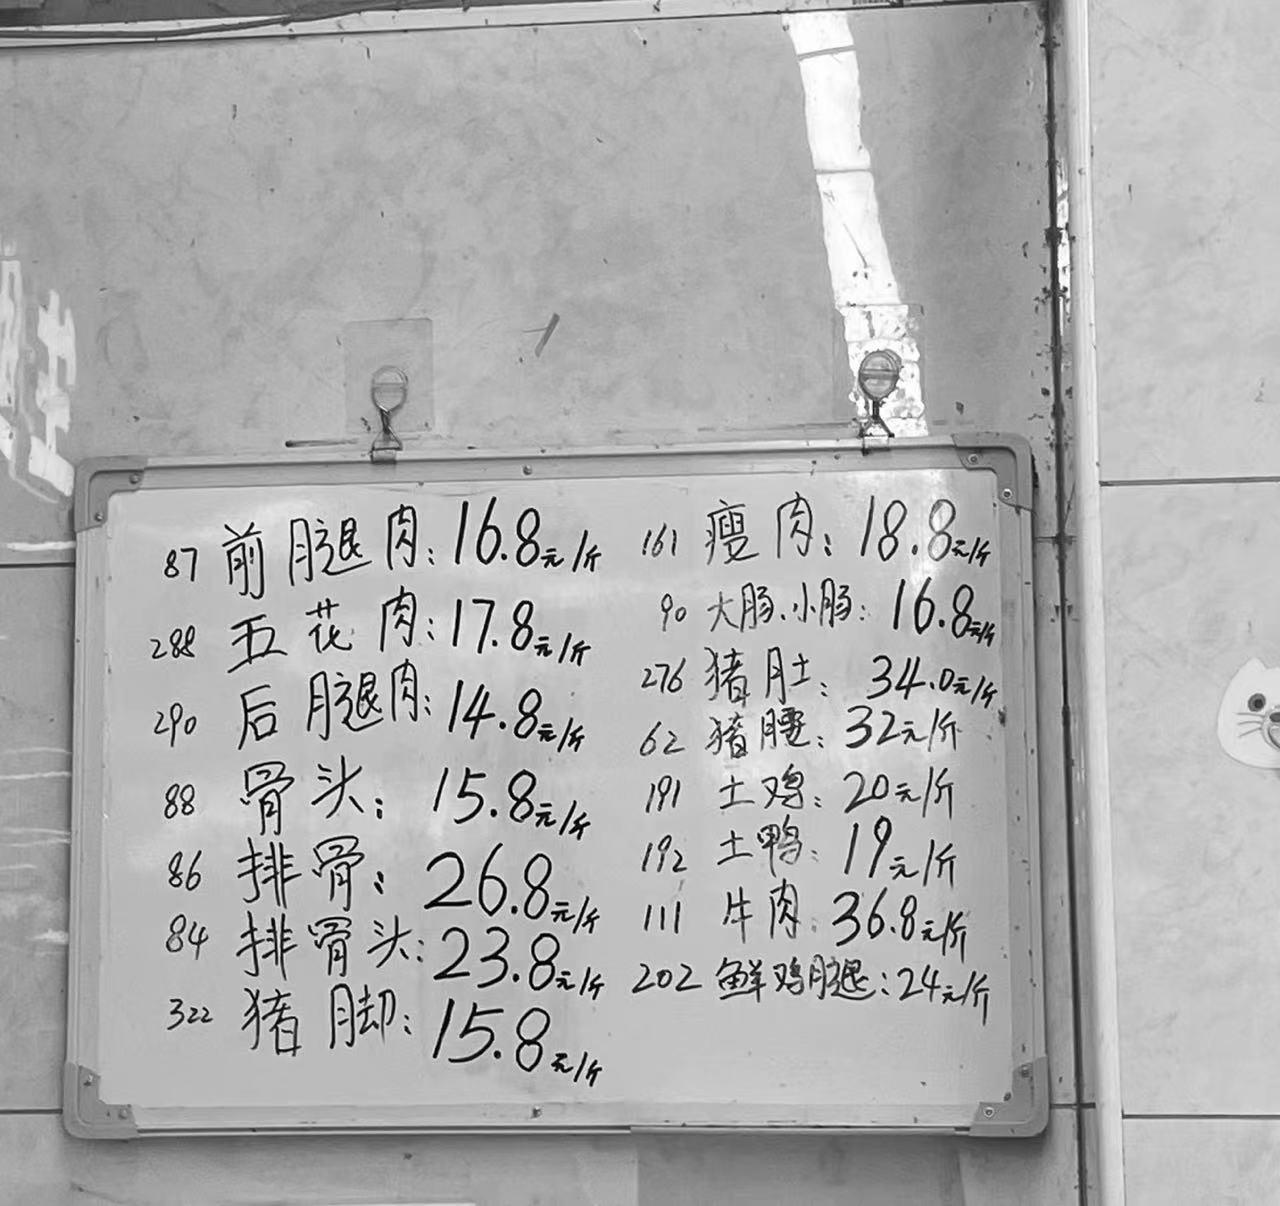 87 前腿肉：16.8元/斤
288 五花肉：17.8元/斤
290 后腿肉：14.8元/斤
88 骨头：15.8元/斤
86 排骨：26.8元/斤
84 排骨头：23.8元/斤
322 猪脚：15.8元/斤
161 瘦肉：18.8元/斤
90 大肠、小肠：16.8元/斤
276 猪肚：34.0元/斤
62 猪腰：32元/斤
191 土鸡：20元/斤
192 土鸭：19元/斤
111 牛肉：36.8元/斤
202 鲜鸡腿：24元/斤